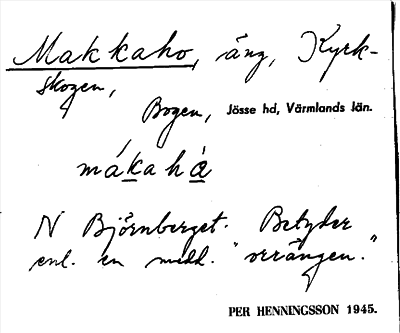 Makkaho, äng, Kyrk-
skogen,
Bogen, Jösse hd, Värmlands län.
mákahà
N Björnberget. Betyder
enl. en medd. "orrängen."
PER HENNINGSSON 1945.